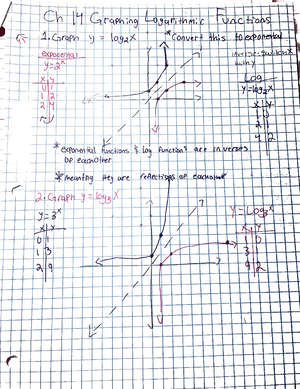 Ch 14 Graphing Logarithmic Functions
1. Graph y = log₂x *Convert this to exponential
exponential
y = 2ˣ
Log
y = log₂x
x y
0 1
1 2
2 4
x y
1 0
2 1
4 2
*exponential functions & log functions are inverses
of eachother
*Meaning they are reflections of eachother
2. Graph y = log₃x
y = 3ˣ
x y
0 1
1 3
2 9
y = Log₃x
x y
1 0
3 1
9 2